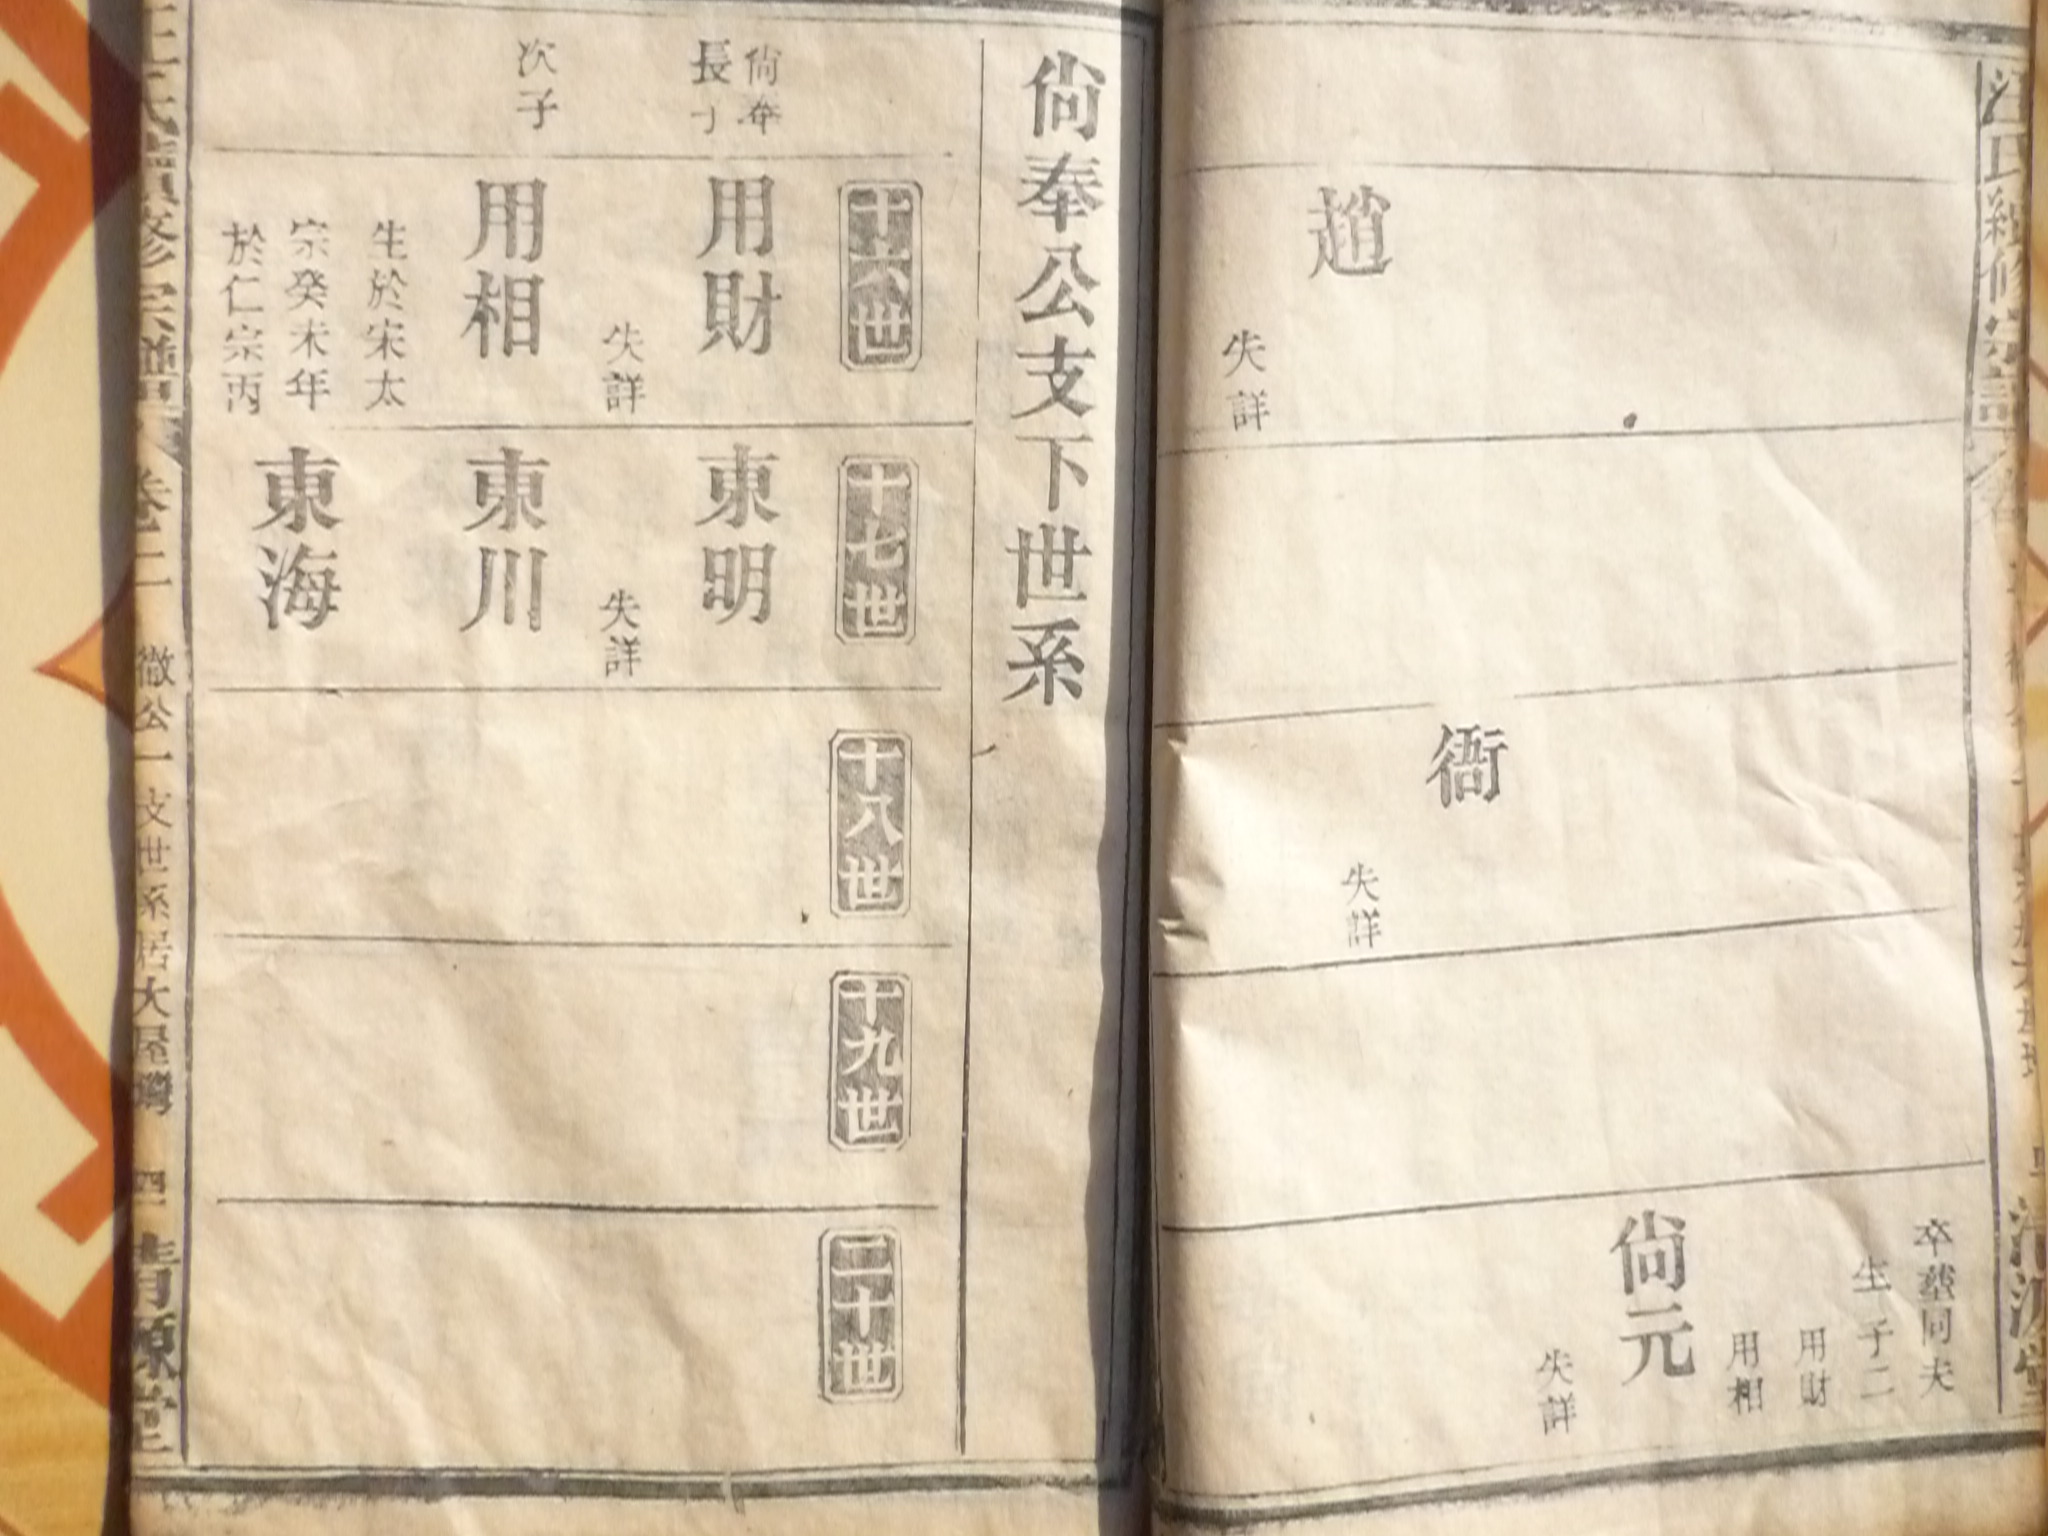 汪氏續修宗譜
趙
失詳
衙
失詳
卒塟同夫
生子二
用財
用相
尙元
失詳
清源堂
尙奉公支下世系
十六世
十七世
十八世
十九世
二十世
尙奉
長子
用財
失詳
東明
失詳
次子
用相
生於宋太
宗癸未年
於仁宗丙
東川
東海
汪氏續修宗譜 卷二 徹公一支世系居大屋灣 四 清源堂